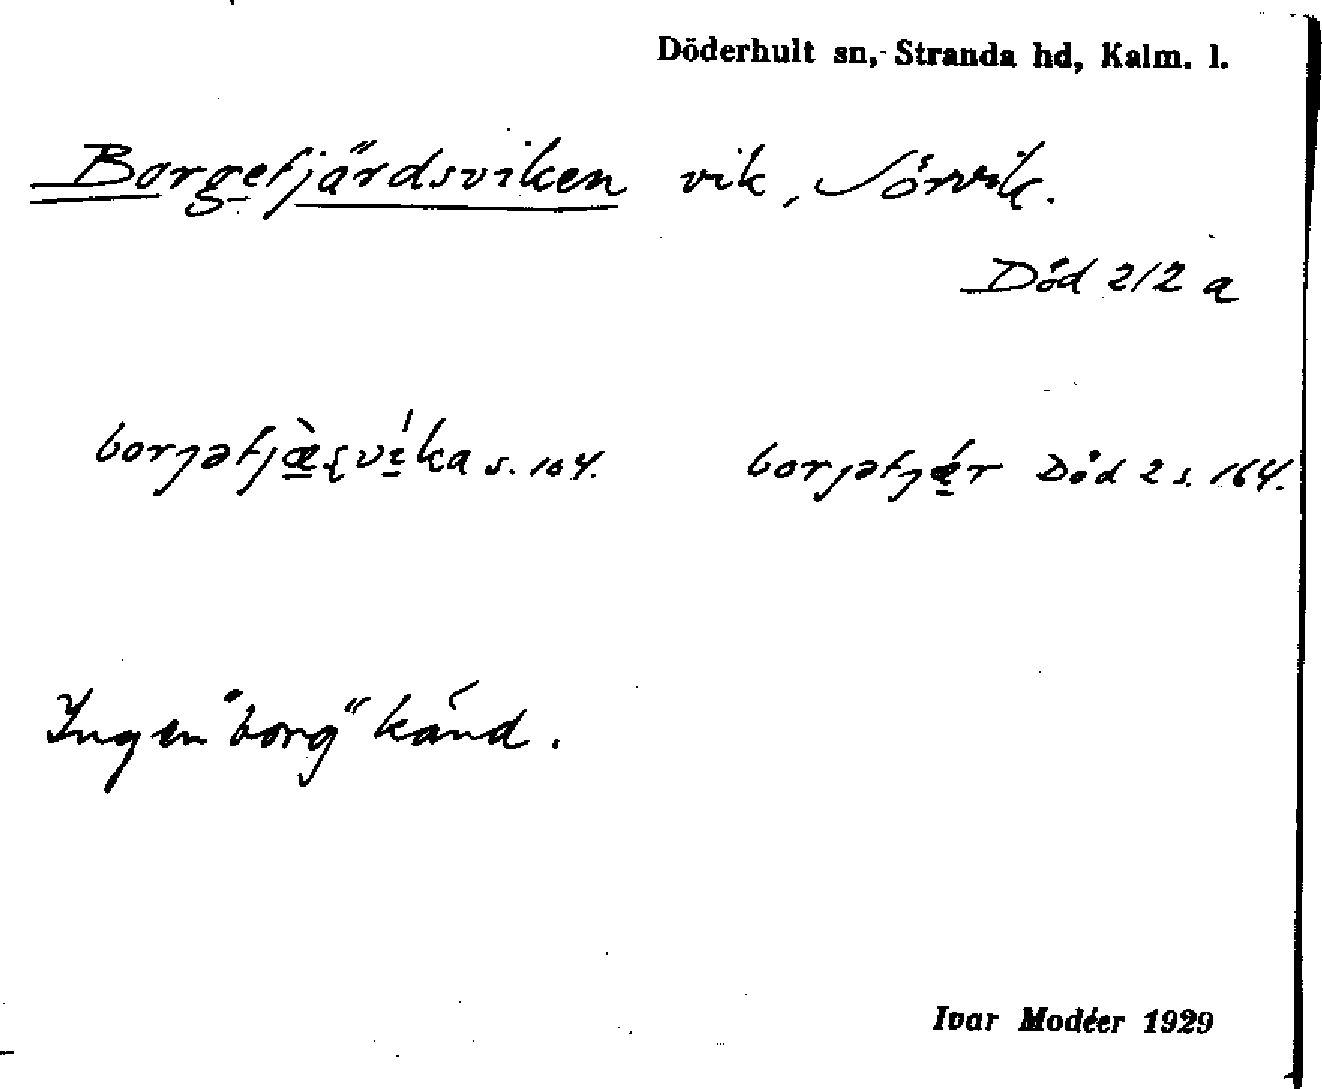 Döderhult sn, Stranda hd, Kalm. l.
Borgefjärdsviken vik, Sörvik.
Död 212 a
borjəfjæ̀ʂvíka s. 164. borjəfjǽr Död 2 s. 164.
Ingen "borg" känd.
Ivar Modéer 1929